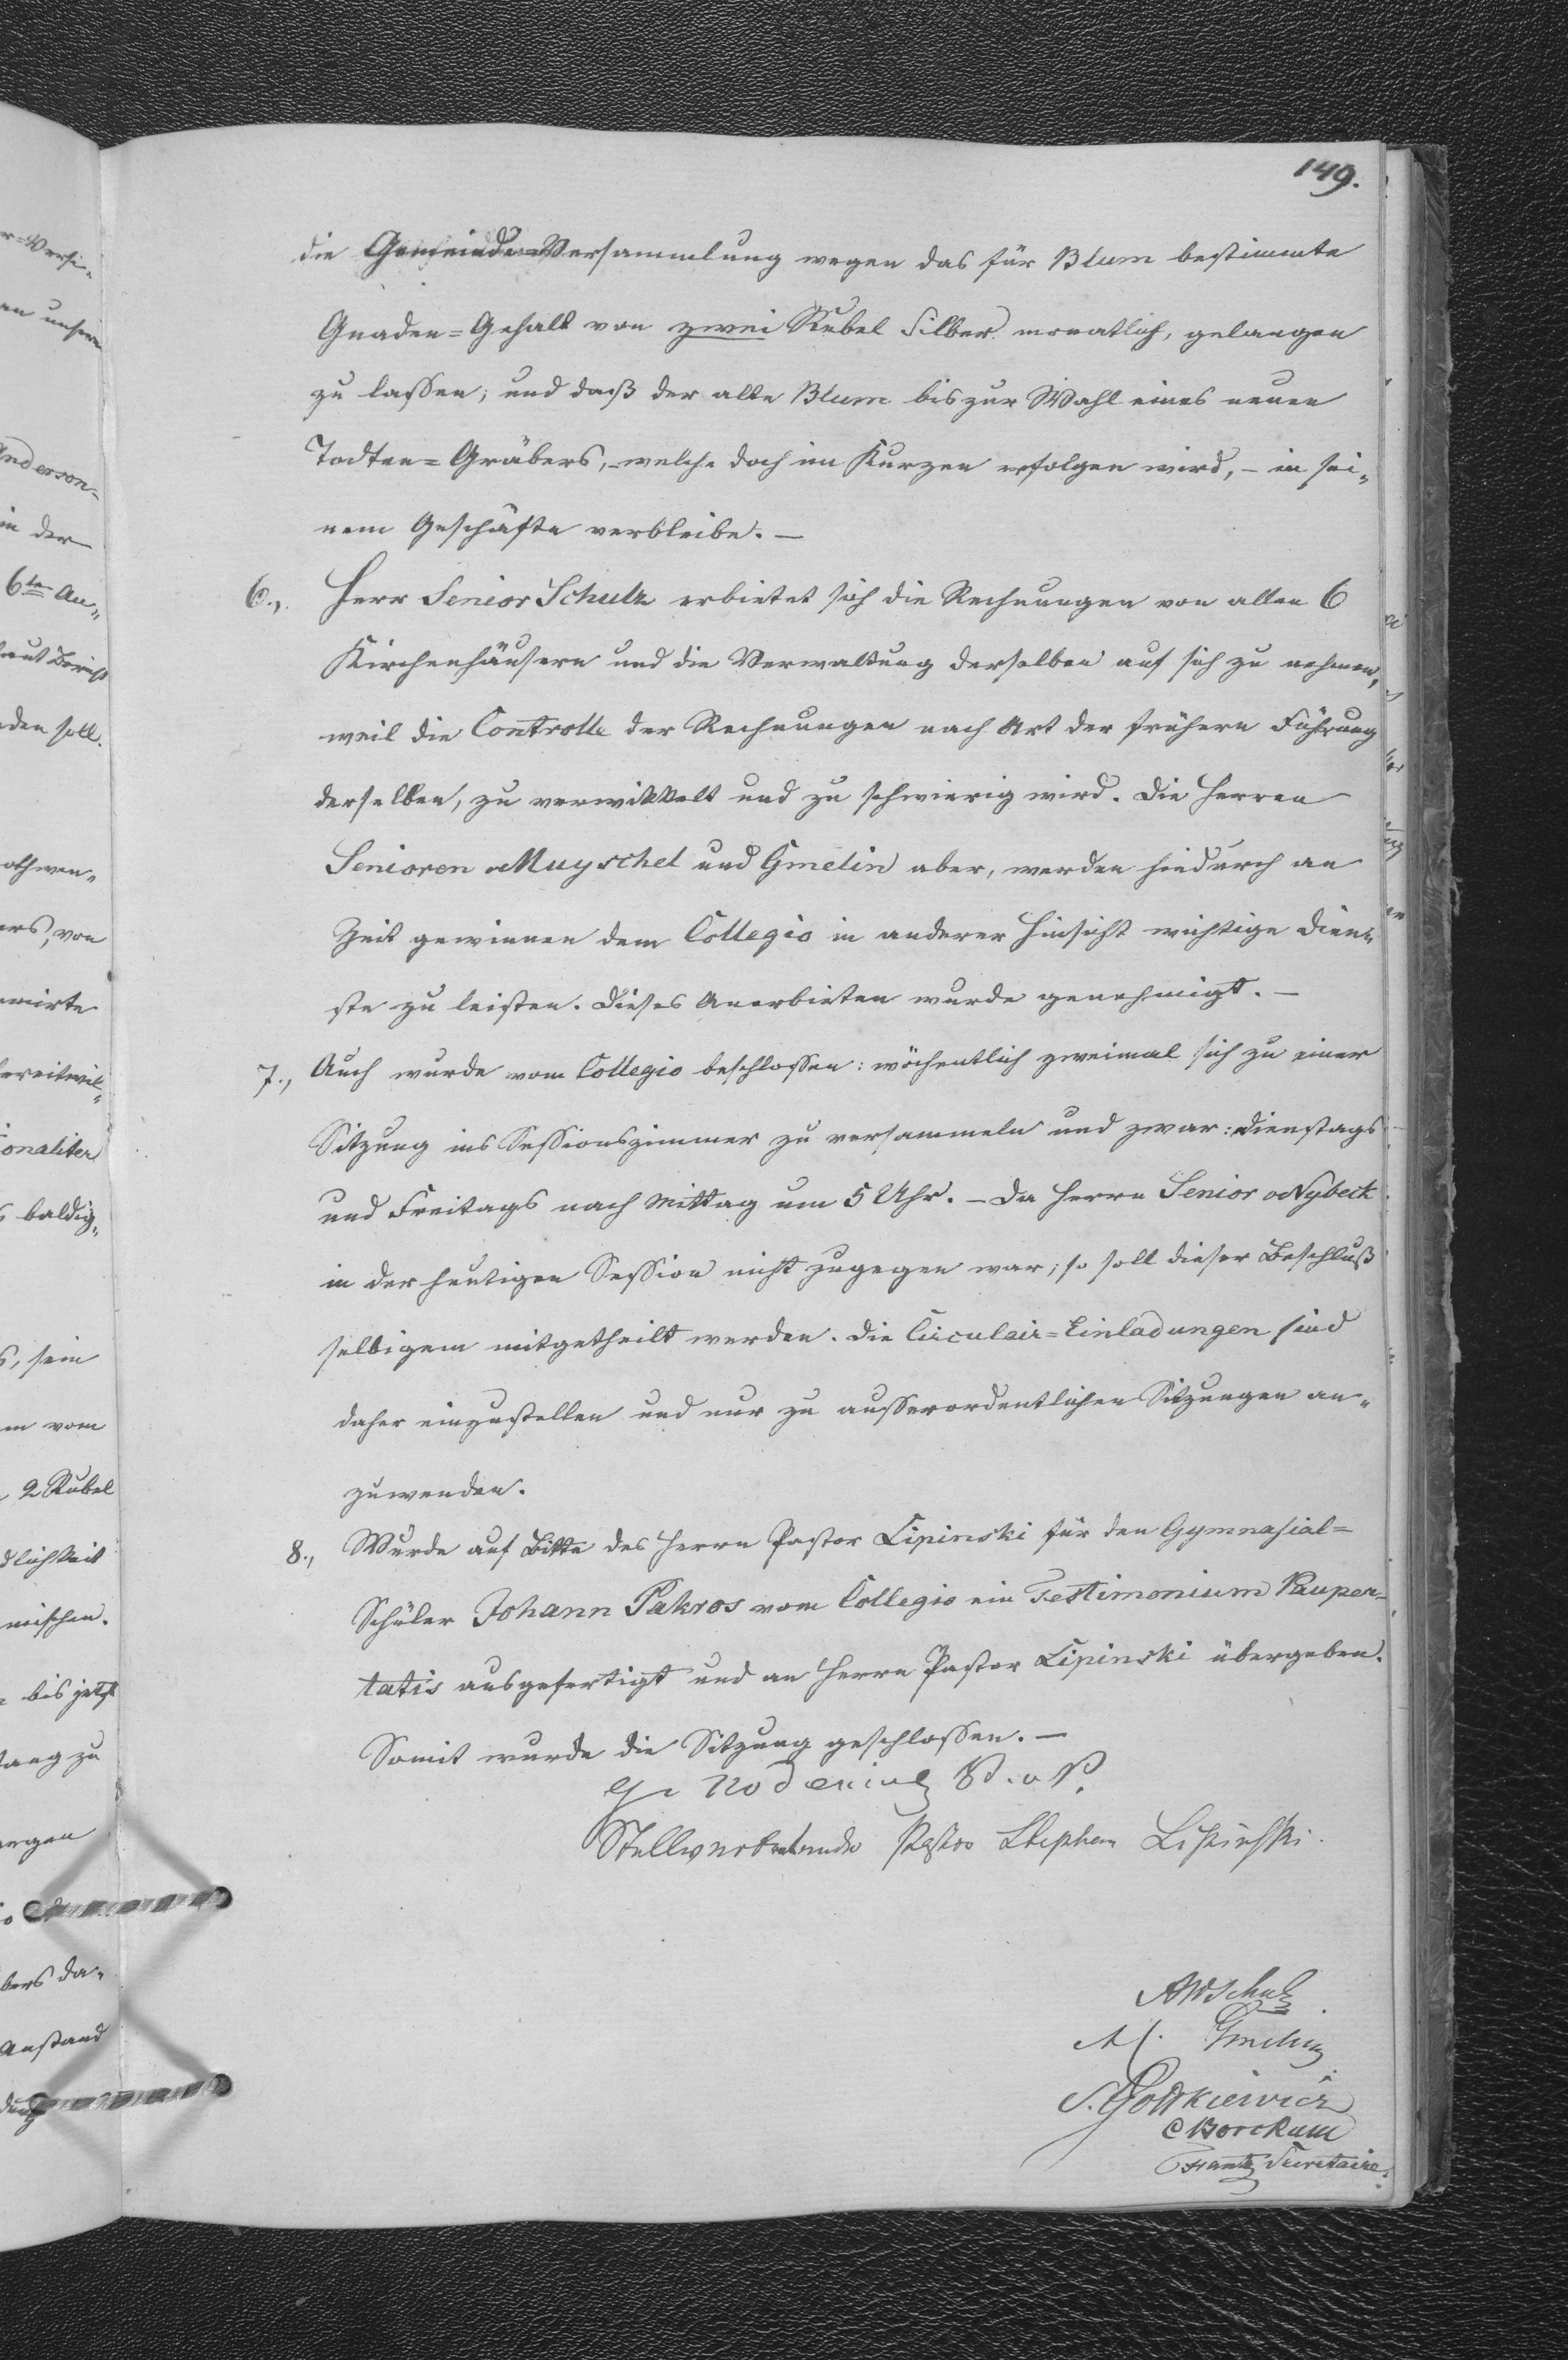 149.
die Gemeinde-Versammlung wegen das für Blum bestimmte
Gnaden=Gehalt von zwei Rubel Silber monatlich, gelangen
zu lassen; und daß der alte Blum bis zur Wahl eines neuen
Todten=Gräbers, – welche doch im Kurzen erfolgen wird, – in sei„
nem Geschäfte verbleibe. –
6., Herr Senior Schulz erbietet sich die Rechnungen von allen 6
Kirchenhäusern und die Verwaltung derselben auf sich zu nehmen,
weil die Controlle der Rechnungen nach Art der frühern Führung
derselben, zu verwikkelt und zu schwierig wird. Die Herren
Senioren Muyschel und Gmelin aber, werden hiedurch an
Zeit gewinnen dem Collegio in anderer Hinsicht wichtige Dien„
ste zu leisten. Dieses Anerbieten wurde genehmigt. –
7., Auch wurde vom Collegio beschlossen: wöchentlich zweimal sich zu einer
Sitzung ins Sessionszimmer zu versammeln und zwar: Dienstags
und Freitags nach Mittag um 5 Uhr. – Da Herrn Senior Nybeck
in der heutigen Session nicht zugegen war; so soll dieser Beschluß
selbigem mitgetheilt werden. Die Circulair=Einladungen sind
daher einzustellen und nur zu ausserordentlichen Sitzungen an„
zuwenden.
8., Wurde auf Bitte des Herrn Pastor Lipinski für den Gymnasial=
Schüler Johann Pakros vom Collegio ein Testimonium Pauper=
tatis ausgefertigt und an Herrn Pastor Lipinski übergeben.
Somit wurde die Sitzung geschlossen. –
Stellvertretender Pastor Stephan Lipinski.
AW Schulz
Gmelin
S. Gottkiewicz
C Borckum
Frantz Secretaire.